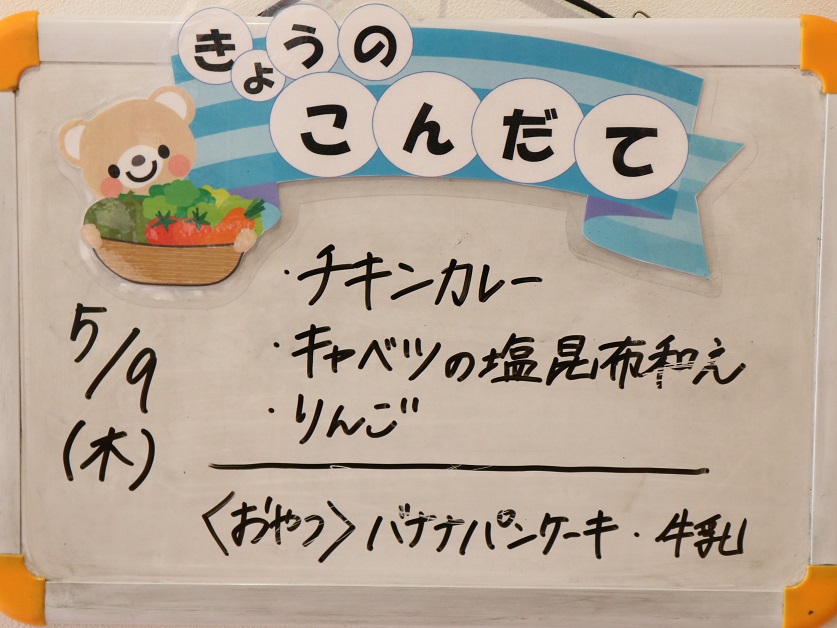 きょうの
こんだて
5/9
(木)
・チキンカレー
・キャベツの塩昆布和え
・りんご
〈おやつ〉バナナパンケーキ・牛乳